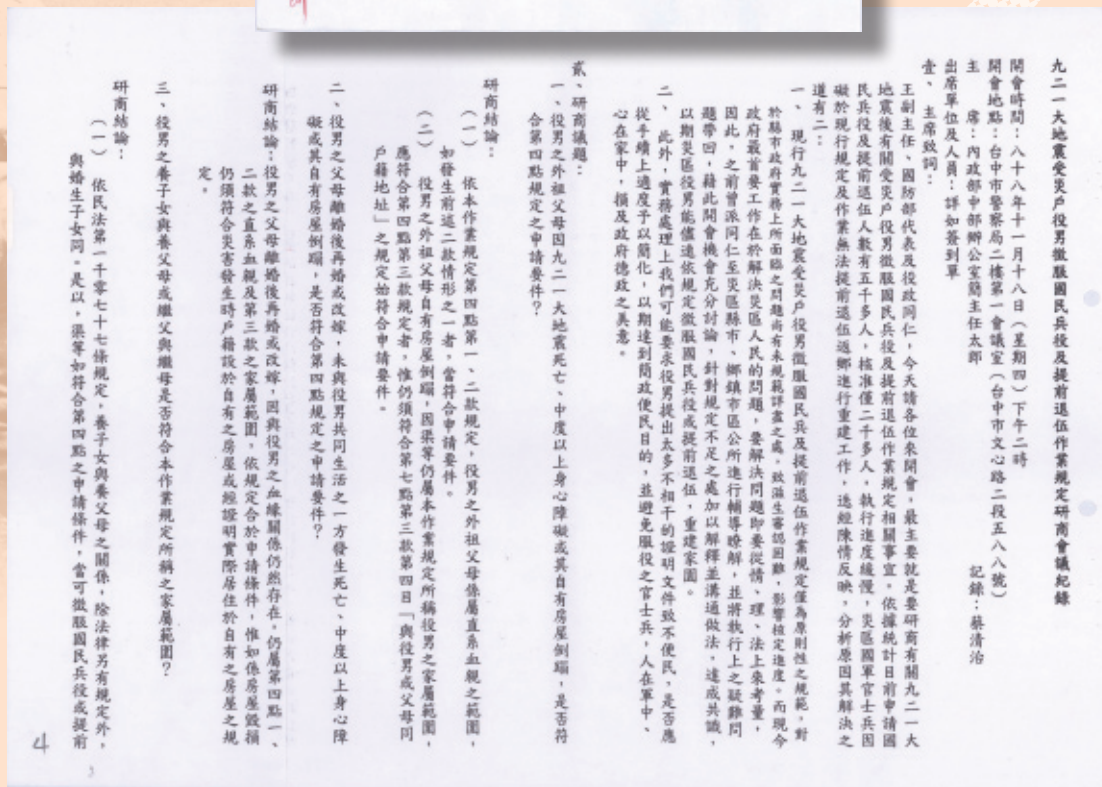 九二一大地震受災戶役男徵服國民兵役及提前退伍作業規定研商會議紀錄
開會時間：八十八年十一月十八日（星期四）下午二時
開會地點：台中市警察局二樓第一會議室（台中市文心路二段五八八號）
主　　席：內政部中部辦公室簡主任太郎　　　　記錄：蔡清治
出席單位及人員：詳如簽到單
壹、主席致詞：
王副主任、國防部代表及役政同仁，今天請各位來開會，最主要就是要研商有關九二一大
地震後有關受災戶役男徵服國民兵役及提前退伍作業規定相關事宜。依據統計目前申請國
民兵役及提前退伍人數有五千多人，核准僅二千多人，執行進度緩慢，災區國軍官士兵因
礙於現行規定及作業無法提前退伍返鄉進行重建工作，迭經陳情反映，分析原因其解決之
道有二：
一、現行九二一大地震受災戶役男徵服國民兵及提前退伍作業規定僅為原則性之規範，對
於縣市政府實務上所面臨之問題尚有未規範詳盡之處，致滋生審認困難，影響核定進度。而現今
政府最首要工作在於解決災區人民的問題，要解決問題即要從情、理、法上來考量，
因此，之前曾派同仁至災區縣市、鄉鎮市區公所進行輔導瞭解，並將執行上之疑難問
題帶回，藉此開會機會充分討論，針對規定不足之處加以解釋並溝通做法，達成共識，
以期災區役男能儘速依規定徵服國民兵役或提前退伍，重建家園。
二、此外，實務處理上我們可能要求役男提出太多不相干的證明文件致不便民，是否應
從手續上適度予以簡化，以期達到簡政便民目的，並避免服役之官士兵，人在軍中、
心在家中，損及政府德政之美意。
貳、研商議題：
一、役男之外祖父母因九二一大地震死亡、中度以上身心障礙或其自有房屋倒塌，是否符
合第四點規定之申請要件？
研商結論：
（一）依本作業規定第四點第一、二款規定，役男之外祖父母係屬直系血親之範圍，
如發生前述二款情形之一者，當符合申請要件。
（二）役男之外祖父母自有房屋倒塌，因渠等仍屬本作業規定所稱役男之家屬範圍，
應符合第四點第三款規定者，惟仍須符合第七點第三款第四目「與役男或父母同
戶籍地址」之規定始符合申請要件。
二、役男之父母離婚後再婚或改嫁，未與役男共同生活之一方發生死亡、中度以上身心障
礙或其自有房屋倒塌，是否符合第四點規定之申請要件？
研商結論：役男之父母離婚後再婚或改嫁，因與役男之血緣關係仍然存在，仍屬第四點一、
二款之直系血親及第三款之家屬範圍，依規定合於申請條件，惟如係房屋毀損
仍須符合災害發生時戶籍設於自有之房屋或經證明實際居住於自有之房屋之規
定。
三、役男之養子女與養父母或繼父與繼母是否符合本作業規定所稱之家屬範圍？
研商結論：
（一）依民法第一千零七十七條規定，養子女與養父母之關係，除法律另有規定外，
與婚生子女同。是以，渠等如符合第四點之申請條件，當可徵服國民兵役或提前
4